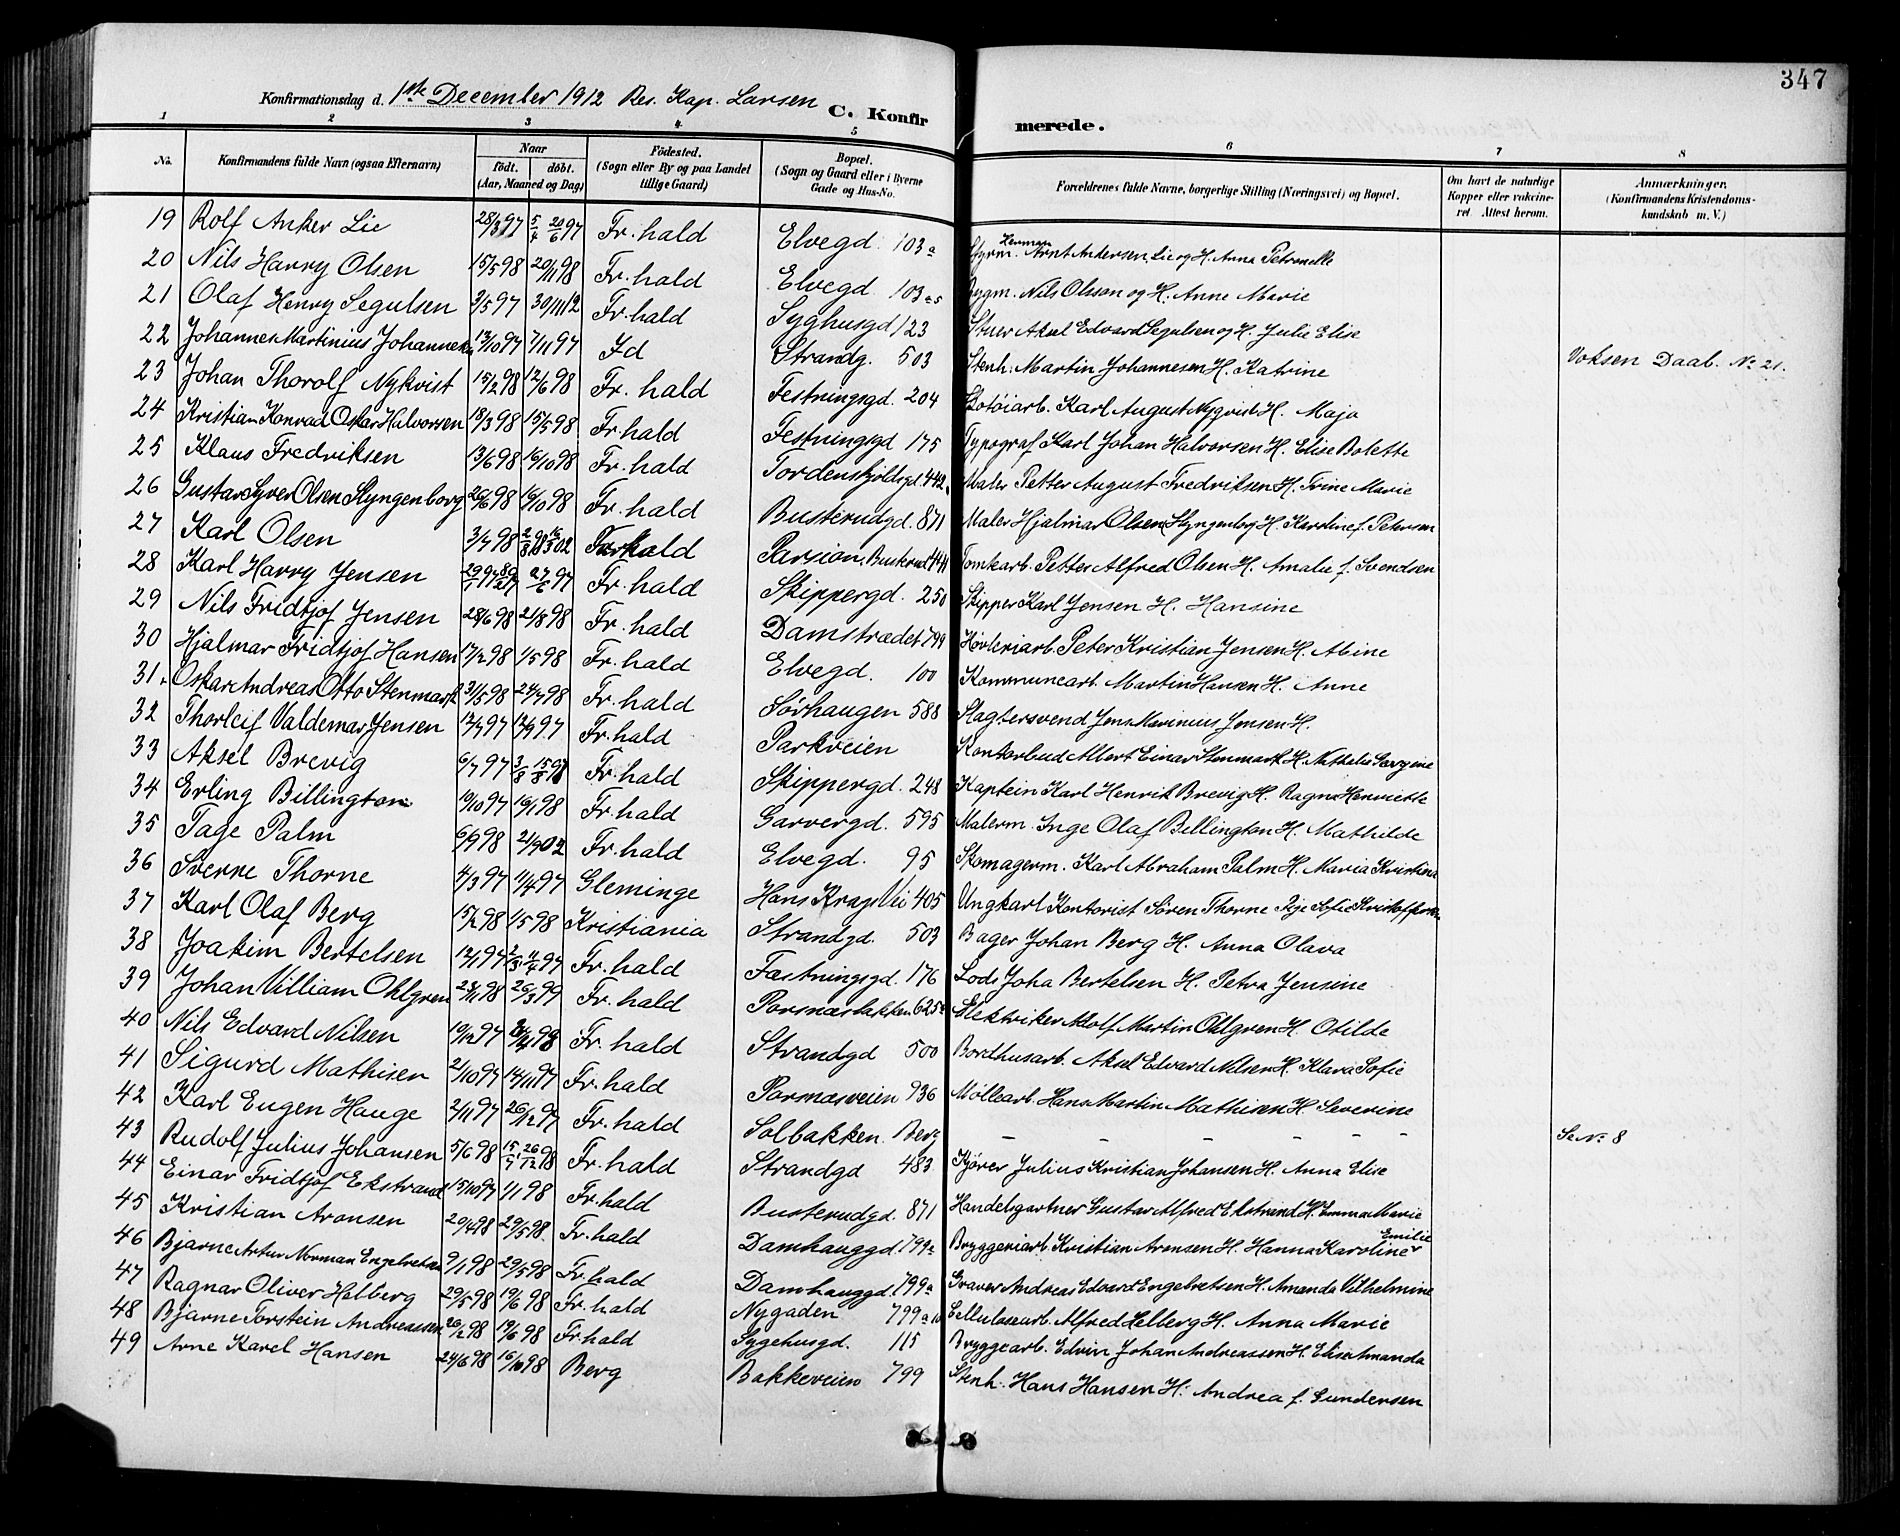 347
Konfirmationsdag d. 1ste December 1912 Res. Kap. Larsen
C. Konfir merede.
1 2 3 4 5 6 7 8
No. Konfirmandens fulde Navn (ogsaa Efternavn) Naar født. døbt. (Aar, Maaned og Dag) Fødested. (Sogn eller By og paa Landet tillige Gaard) Bopæl. (Sogn og Gaard eller i Byerne Gade og Hus-No. Forældrenes fulde Navne, borgerlige Stilling (Næringsvei) og Bopæl. Om havt de naturlige Kopper eller vakcineret. Attest herom. Anmærkninger. (Konfirmandens Kristendomskundskab m. V.)
19 Rolf Anker Lie 28/3 97 5/4 20/6 97 Fr.hald Elvegd. 103a Styrm. Arnt Andersen Lie og H. Anna Petronelle
20 Nils Harry Olsen 15/5 98 20/11 98 Fr.hald Elvegd 103 Bygm. Nils Olsson og H. Anne Marie
21 Olaf Henry Segulsen 3/5 97 30/11 12 Fr.hald Syghusgd 123 Stuer Aksel Edvard Segulsen og H. Julie Elise
22 Johannes Martinius Johannesen 13/10 97 7/11 97 Id Strandg. 503 Stenh. Martin Johannesen H. Katrine Voksen Daab. No 21.
23 Johan Thorolf Nykvist 15/2 98 12/6 98 Fr. hald Festningsgd. 204 Skotøiarb. Karl August Nyqvist H. Maja
24 Kristian Konrad Oskar Halvorsen 18/3 98 15/5 98 Fr.hald Festningsgd 175 Typograf Karl Johan Halvorsen H. Elise Bolette
25 Klaus Fredriksen 13/6 98 16/10 98 Fr.hald Tordenskjoldsgd. 442 Maler Petter August Fredriksen H. Trine Marie
26 Gustav Syver Olsen Slyngenborg 26/6 98 16/10 98 Fr. hald Busterudgd. 871 Maler Hjalmar Olsen Slyngenborg H. Karoline f. Petersen
27 Karl Olsen 3/7 98 Fr.hald Busterud Tomtearb. Petter Alfred Olsen H. Amalie f. Svendsen
28 Karl Harry Jensen 27/6 97 Fr. hald Skippergd. 250 Skipper Karl Jensen H. Hansine
29 Nils Fridtjof Jensen 28/6 98 21/8 98 Fr. hald Damstrædet 799 Høvleriarb. Peter Kristian Jensen H. Abine
30 Hjalmar Fridtjof Hansen 17/2 98 1/5 98 Fr. hald Elvegd. 100 Kommunearb. Martin Hansen H. Anne
31. Oskar Andreas Otto Stenmark 31/5 98 24/7 98 Fr. hald Sørhaugen 588 Slagtersvend Jens Marinius Jensen H.
32 Thorleif Valdemar Jensen 12/7 97 12/9 97 Fr. hald Parkveien Kontorbud Albert Einar Stenmark H. Nathalie Georgine
33 Aksel Brevig 6/7 97 3/8 15/8 97 Fr. hald Skippergd. 248 Kaptein Karl Henrik Brevig H. Ragna Henriette
34 Erling Billington 19/10 97 16/1 98 Fr. hald Garvergd. 595 Malerm. Inge Olaf Billington H. Mathilde
35 Tage Palm 6/9 98 21/9 02 Fr. hald Elvegd. 95 Skomagerm. Karl Abraham Palm H. Maria Kristina
36 Sverre Thorne 4/3 97 11/4 97 Gleminge Hans Krags Vei 405 Ungkarl Kontorist Søren Thorne Pige Sofie Kristoffersen
37 Karl Olaf Berg 15/2 98 1/5 98 Kristiania Strandgd. 503 Bager Johan Berg H. Anna Olava
38 Joakim Bertelsen 12/1 97 2/3 11/4 97 Fr. hald Fæstningsgd. 176 Lods Joha Bertelsen H. Petra Jensine
39 Johan Villiam Ohlgren 28/11 98 26/3 99 Fr. hald Porsnæsbakken 625 Elektriker Adolf Martin Ohlgren H. Otilde
40 Nils Edvard Nilsen 19/12 97 98 Fr. hald Strandgd 500 Bordhusarb. Aksel Edvard Nilsen H. Klara Sofie
41 Sigurd Mathisen 2/10 97 14/11 97 Fr. hald Porsnæsveien 936 Møllearb. Hans Martin Mathisen H. Severine
42 Karl Eugen Hauge 2/11 97 26/12 97 Fr. hald Solbakken. Berg - - - - - - Se No 8
43 Rudolf Julius Johansen 5/6 98 15/7 26/12 98 Fr. hald Strandgd 483 Kjører Julius Kristian Johansen H. Anna Elise
44 Einar Fridtjof Ekstrand 15/10 97 1/1 98 Fr. hald Busterudgd. 871 Handelsgartner Gustav Alfred Ekstrand H. Emma Marie
45 Kristian Aronsen 20/4 98 29/5 98 Fr. hald Damhauggd. 799a Bryggeriarb. Kristian Aronsen H. Hanna Karoline Emilie
46 Bjarne Artur Norman Engebretsen 9/1 98 29/5 98 Fr. hald Damhauggd. 799a Graver Andreas Edvard Engebretsen H. Amanda Vilhelmine
47 Ragnar Oliver Helberg 29/5 98 19/6 98 Fr. hald Nygaden 799a Cellulosearb. Alfred Helberg H. Anna Marie
48 Bjarne Torstein Andreassen 26/2 98 19/6 98 Fr. hald Sygehusgd. 115 Bryggearb. Edvin Johan Andreassen H. Elise Amanda
49 Arne Karel Hansen 24/6 98 16/10 98 Berg Bakkeveien 799 Stenh. Hans Hansen H. Andrea f. Gundersen